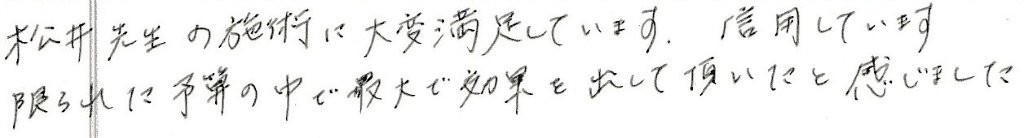 松井先生の施術に大変満足しています. 信用しています
限られた予算の中で最大で効果を出して頂いたと感じました